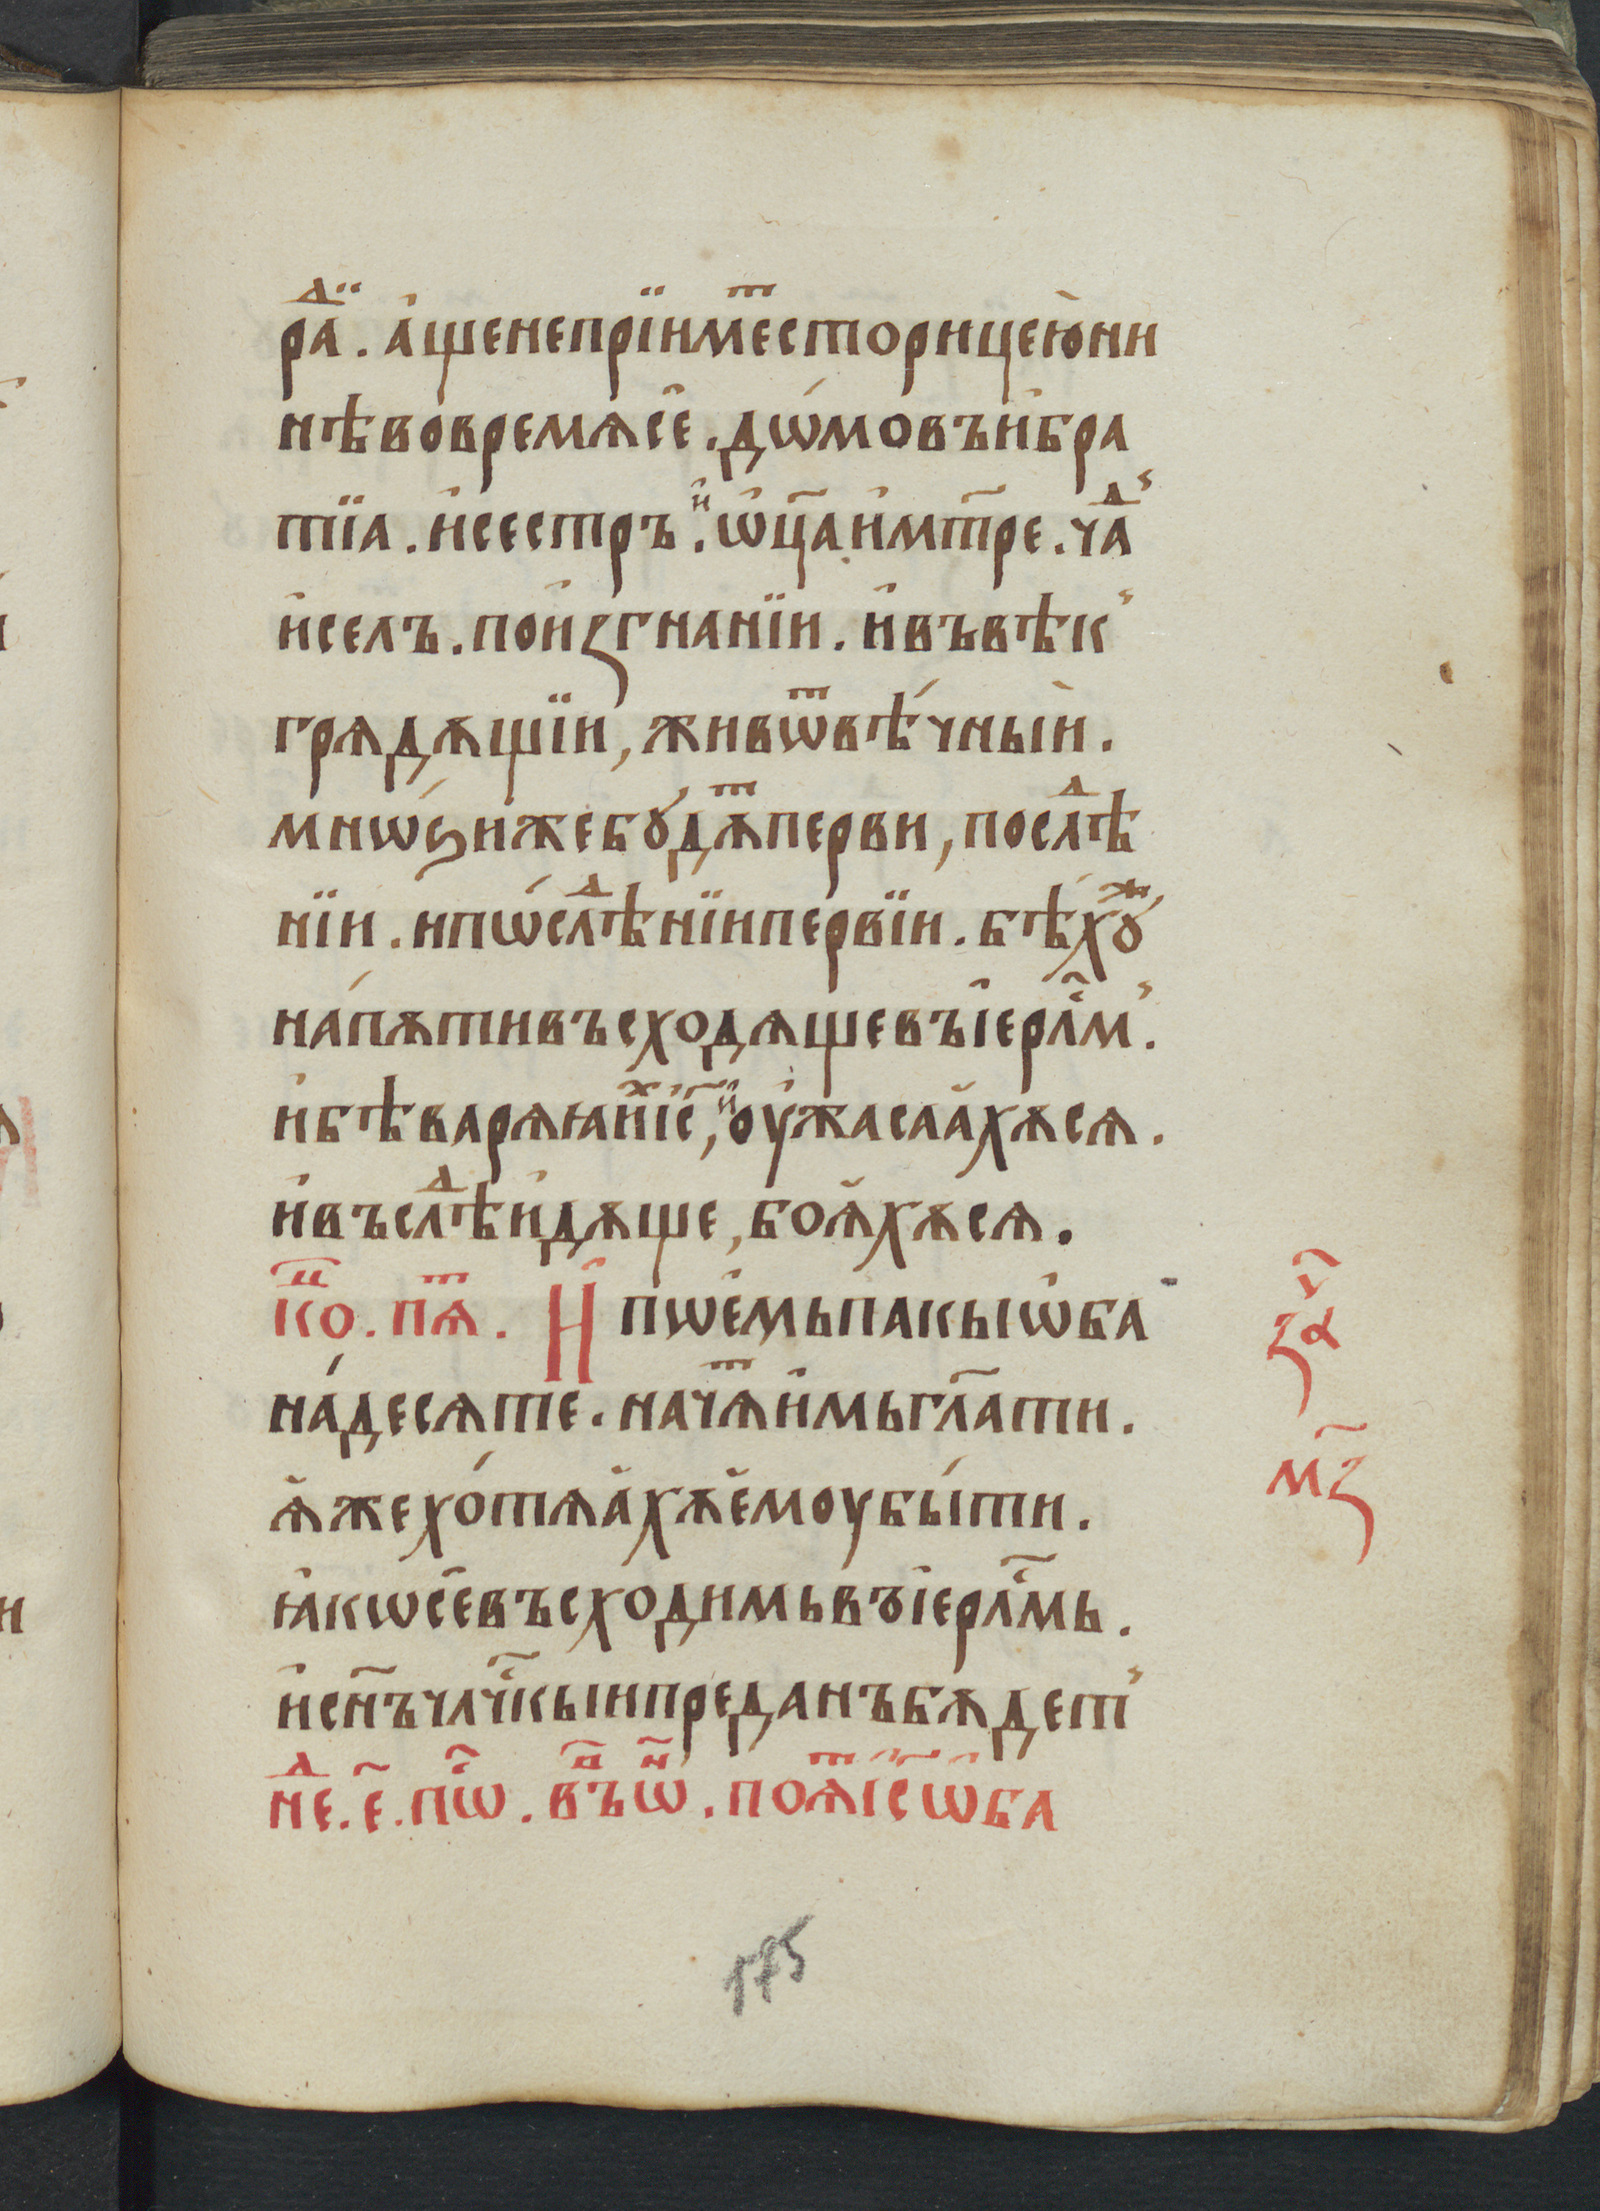 раⷣ҇ . а҆щенепрїимⷮесторицею҆ни
нѣвовремѧсе҆ . дѡ́мовъи҆бра
тїа . и҆сестръ .и҆ ѡ҆ц҃аи҆мт҃ре . чаⷣ
и҆селъ . пои҆ꙁгнанїи . и҆въвѣк҆
грѧдѫщїи , живѡⷮвѣ́чныи̇ .
мнѡ́ѕижебꙋ́дѫⷮперви , послⷣѣ
нїи . ипѡ́слⷣѣнїипервїи . бѣ́хꙋⷤ
на́пѫтивъсходѧщевъі҆ерⷭ҇лм҆ .
и҆бѣварѧꙗиⷯі҆с҃ , и҆ оу҆жасаа҆хѫсѧ .
и҆въслⷣѣи҆дѫще , боѧ҆хѫсѧ .
коⷰ҇ . пѧⷮ . И҆ пѡе҆мьпакыѡ҆ба
на́десѧте . начѧⷮи҆мьгл҃ати .
ꙗ҆жехо́тѧа҆хѫе҆моубы́ти .
ꙗ҆кѡсе҆въсходимьвъі҆ерⷭ҇лмь .
и҆сн҃ъчлчⷭ҇кыипреданъбѫдет҆
неⷣ . е҃ . пⷭ҇ѡ . въⷡ҇ѡⷩ . поѧⷮі҆с҃ѡ҆ба
за҃ⷱ
мз҃
175